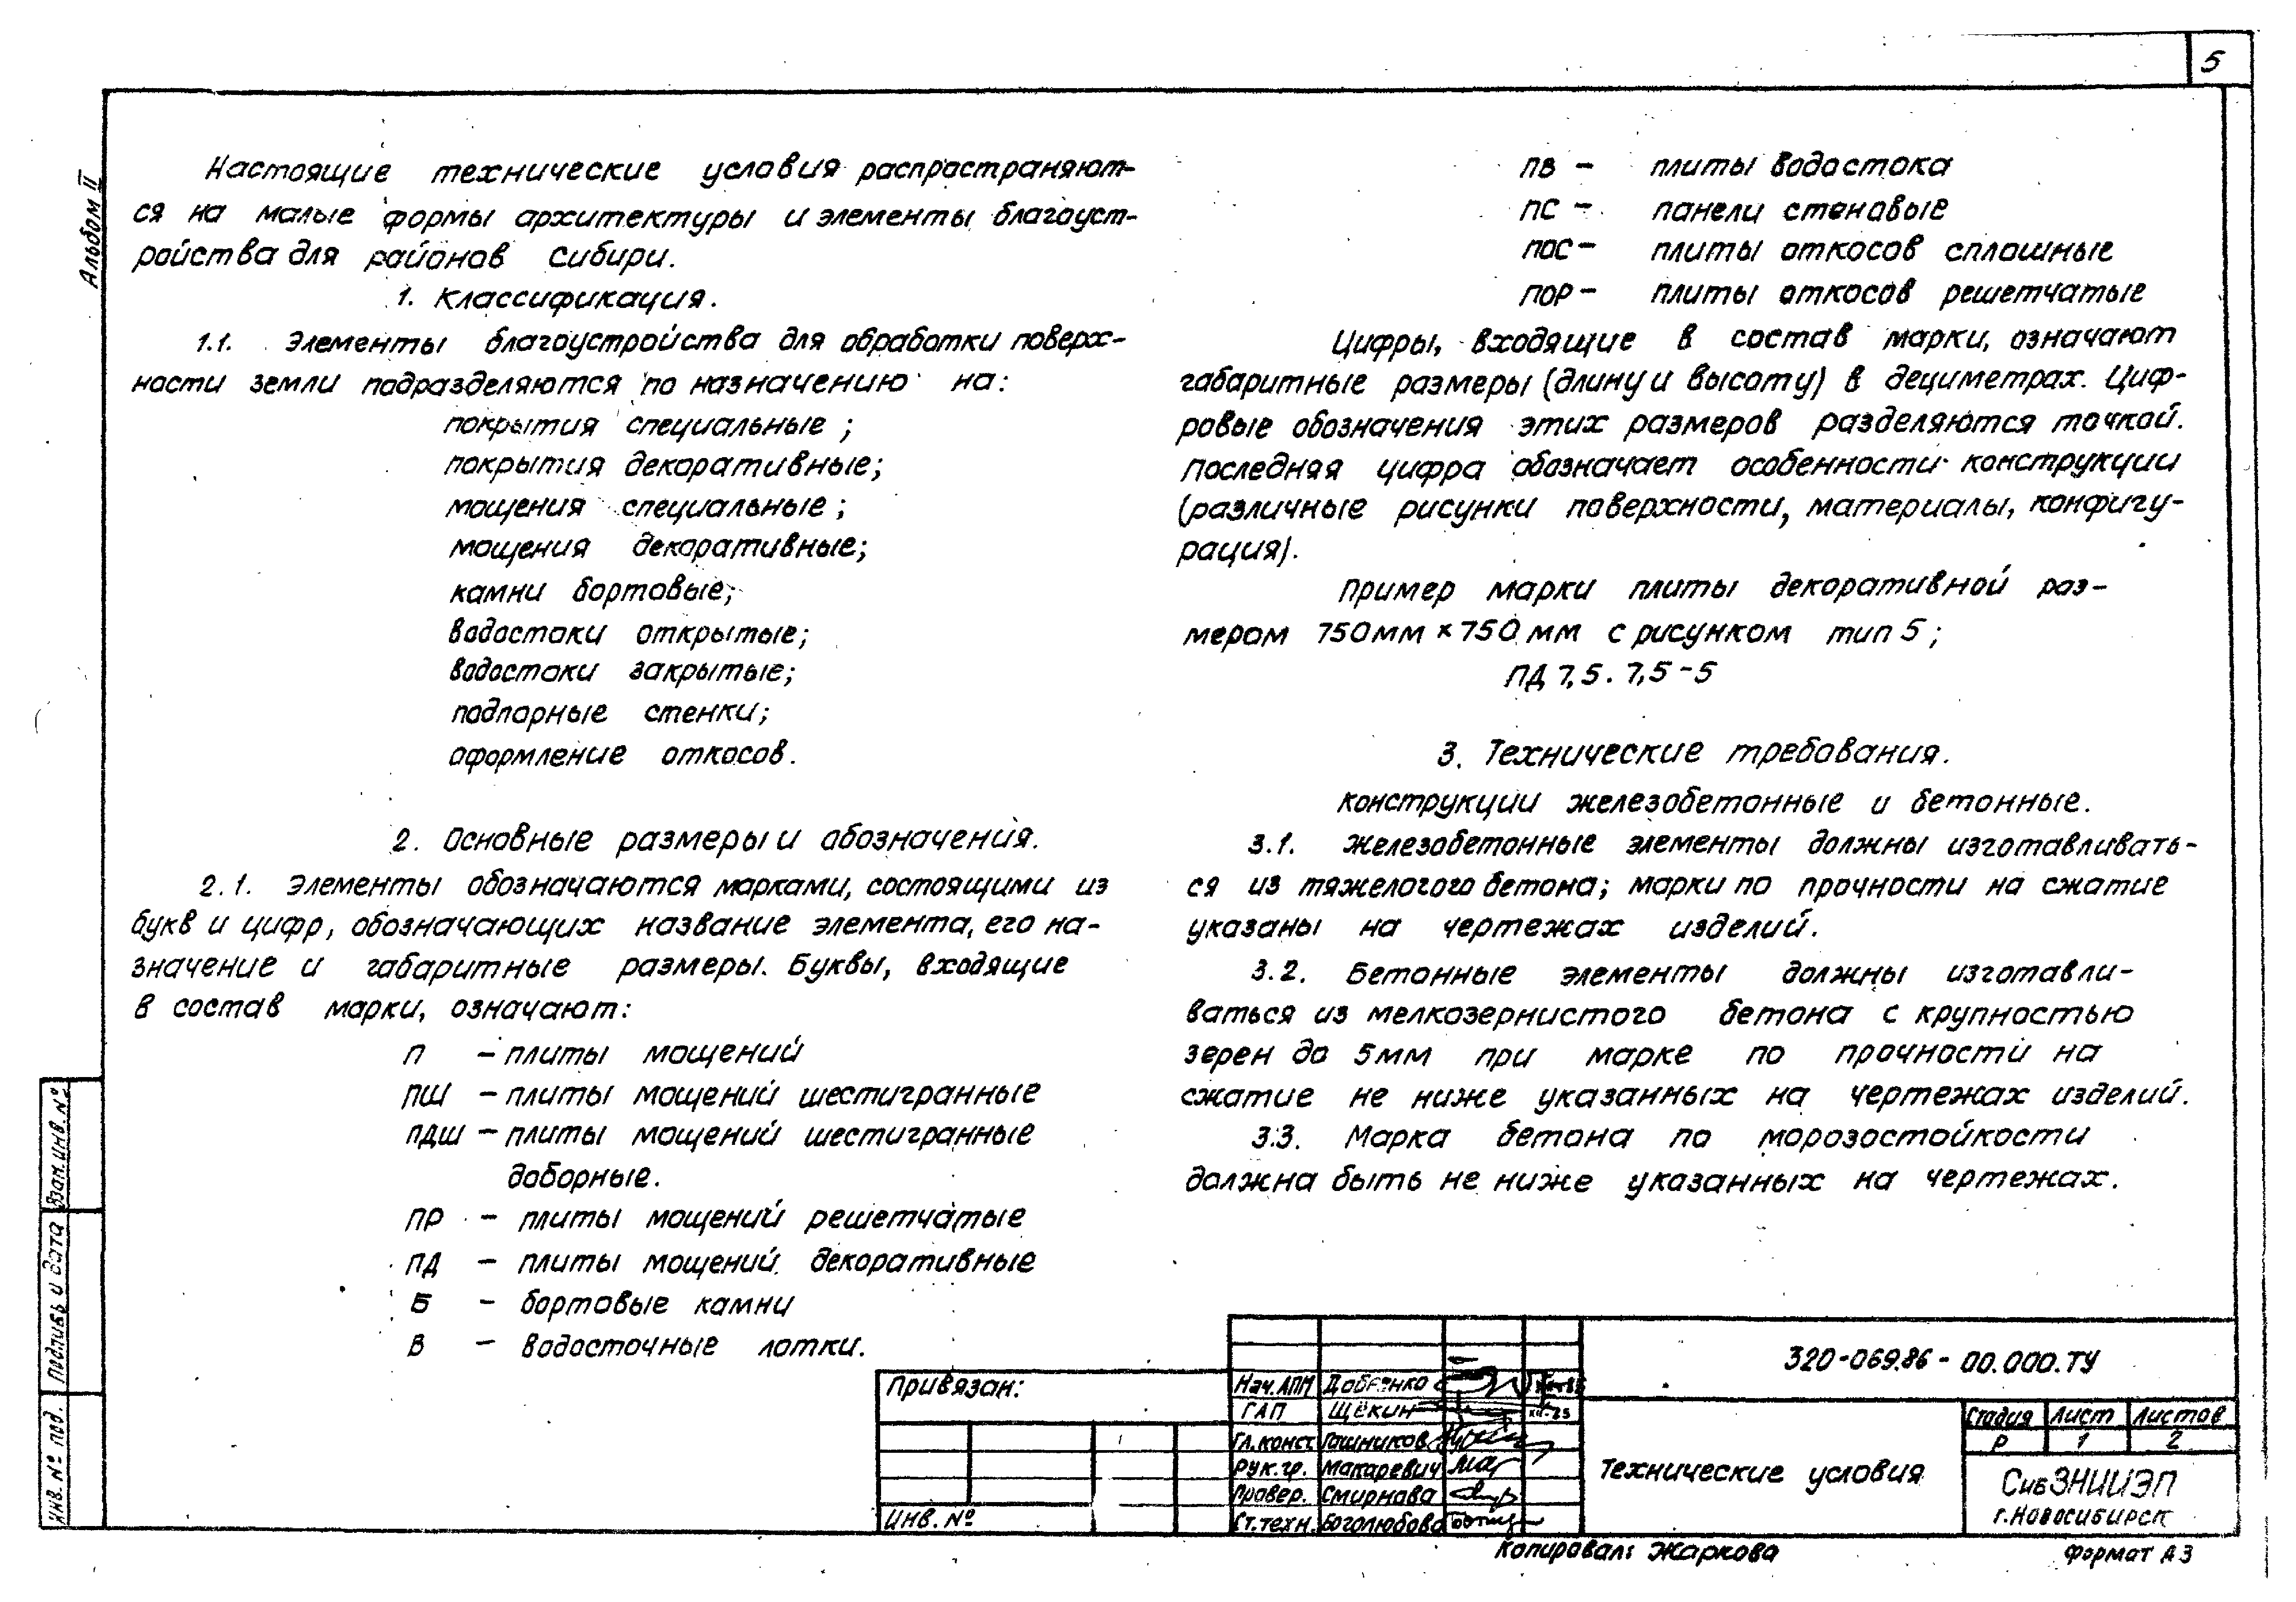 5
Альбом II
Настоящие технические условия распространяют-
ся на малые формы архитектуры и элементы благоуст-
ройства для районов Сибири.
1. Классификация.
1.1. Элементы благоустройства для обработки поверх-
ности земли подразделяются по назначению на:
покрытия специальные;
покрытия декоративные;
мощения специальные;
мощения декоративные;
камни бортовые;
водостоки открытые;
водостоки закрытые;
подпорные стенки;
оформление откосов.
2. Основные размеры и обозначения.
2.1. Элементы обозначаются марками, состоящими из
букв и цифр, обозначающих название элемента, его на-
значение и габаритные размеры. Буквы, входящие
в состав марки, означают:
П – плиты мощений
ПШ – плиты мощений шестигранные
ПДШ – плиты мощений шестигранные
доборные.
ПР – плиты мощений решетчатые
ПД – плиты мощений декоративные
Б – бортовые камни
В – водосточные лотки.
ПВ – плиты водостока
ПС – панели стеновые
ПОС – плиты откосов сплошные
ПОР – плиты откосов решетчатые
Цифры, входящие в состав марки, означают
габаритные размеры (длину и высоту) в дециметрах. Циф-
ровые обозначения этих размеров разделяются точкой.
Последняя цифра обозначает особенности конструкции
(различные рисунки поверхности, материалы, конфигу-
рация).
Пример марки плиты декоративной раз-
мером 750мм × 750 мм с рисунком тип 5;
ПД 7,5. 7,5 – 5
3. Технические требования.
Конструкции железобетонные и бетонные.
3.1. Железобетонные элементы должны изготавливать-
ся из тяжелогого бетона; марки по прочности на сжатие
указаны на чертежах изделий.
3.2. Бетонные элементы должны изготавли-
ваться из мелкозернистого бетона с крупностью
зерен до 5мм при марке по прочности на
сжатие не ниже указанных на чертежах изделий.
3.3. Марка бетона по морозостойкости
должна быть не ниже указанных на чертежах.
Взам. инв. №
Подпись и дата
Инв. № под.
Привязан:
Инв. №
Нач. АПМ
ГАП Щёкин
Гл. конст. Гашников
Рук. гр. Макаревич
Провер. Смирнова
Ст. техн. Боголюбова
320-069.86 - 00.000.ТУ
Технические условия
Стадия Лист Листов
Р 1 2
СибЗНИИЭП
г. Новосибирск
Копировал: Жаркова
Формат А3